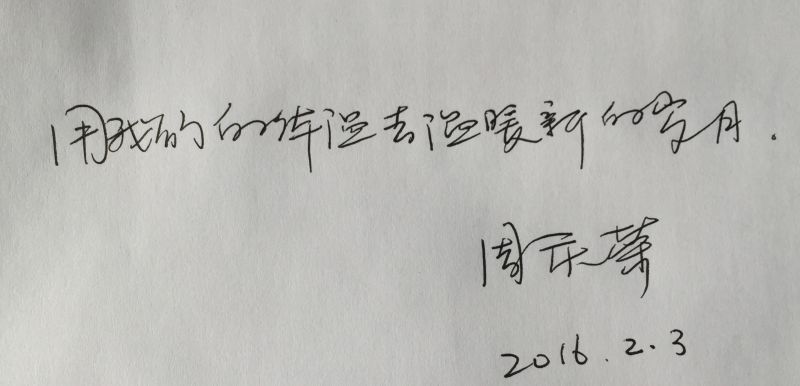 用我们的体温去温暖新的岁月.
周庆荣
2016.2.3